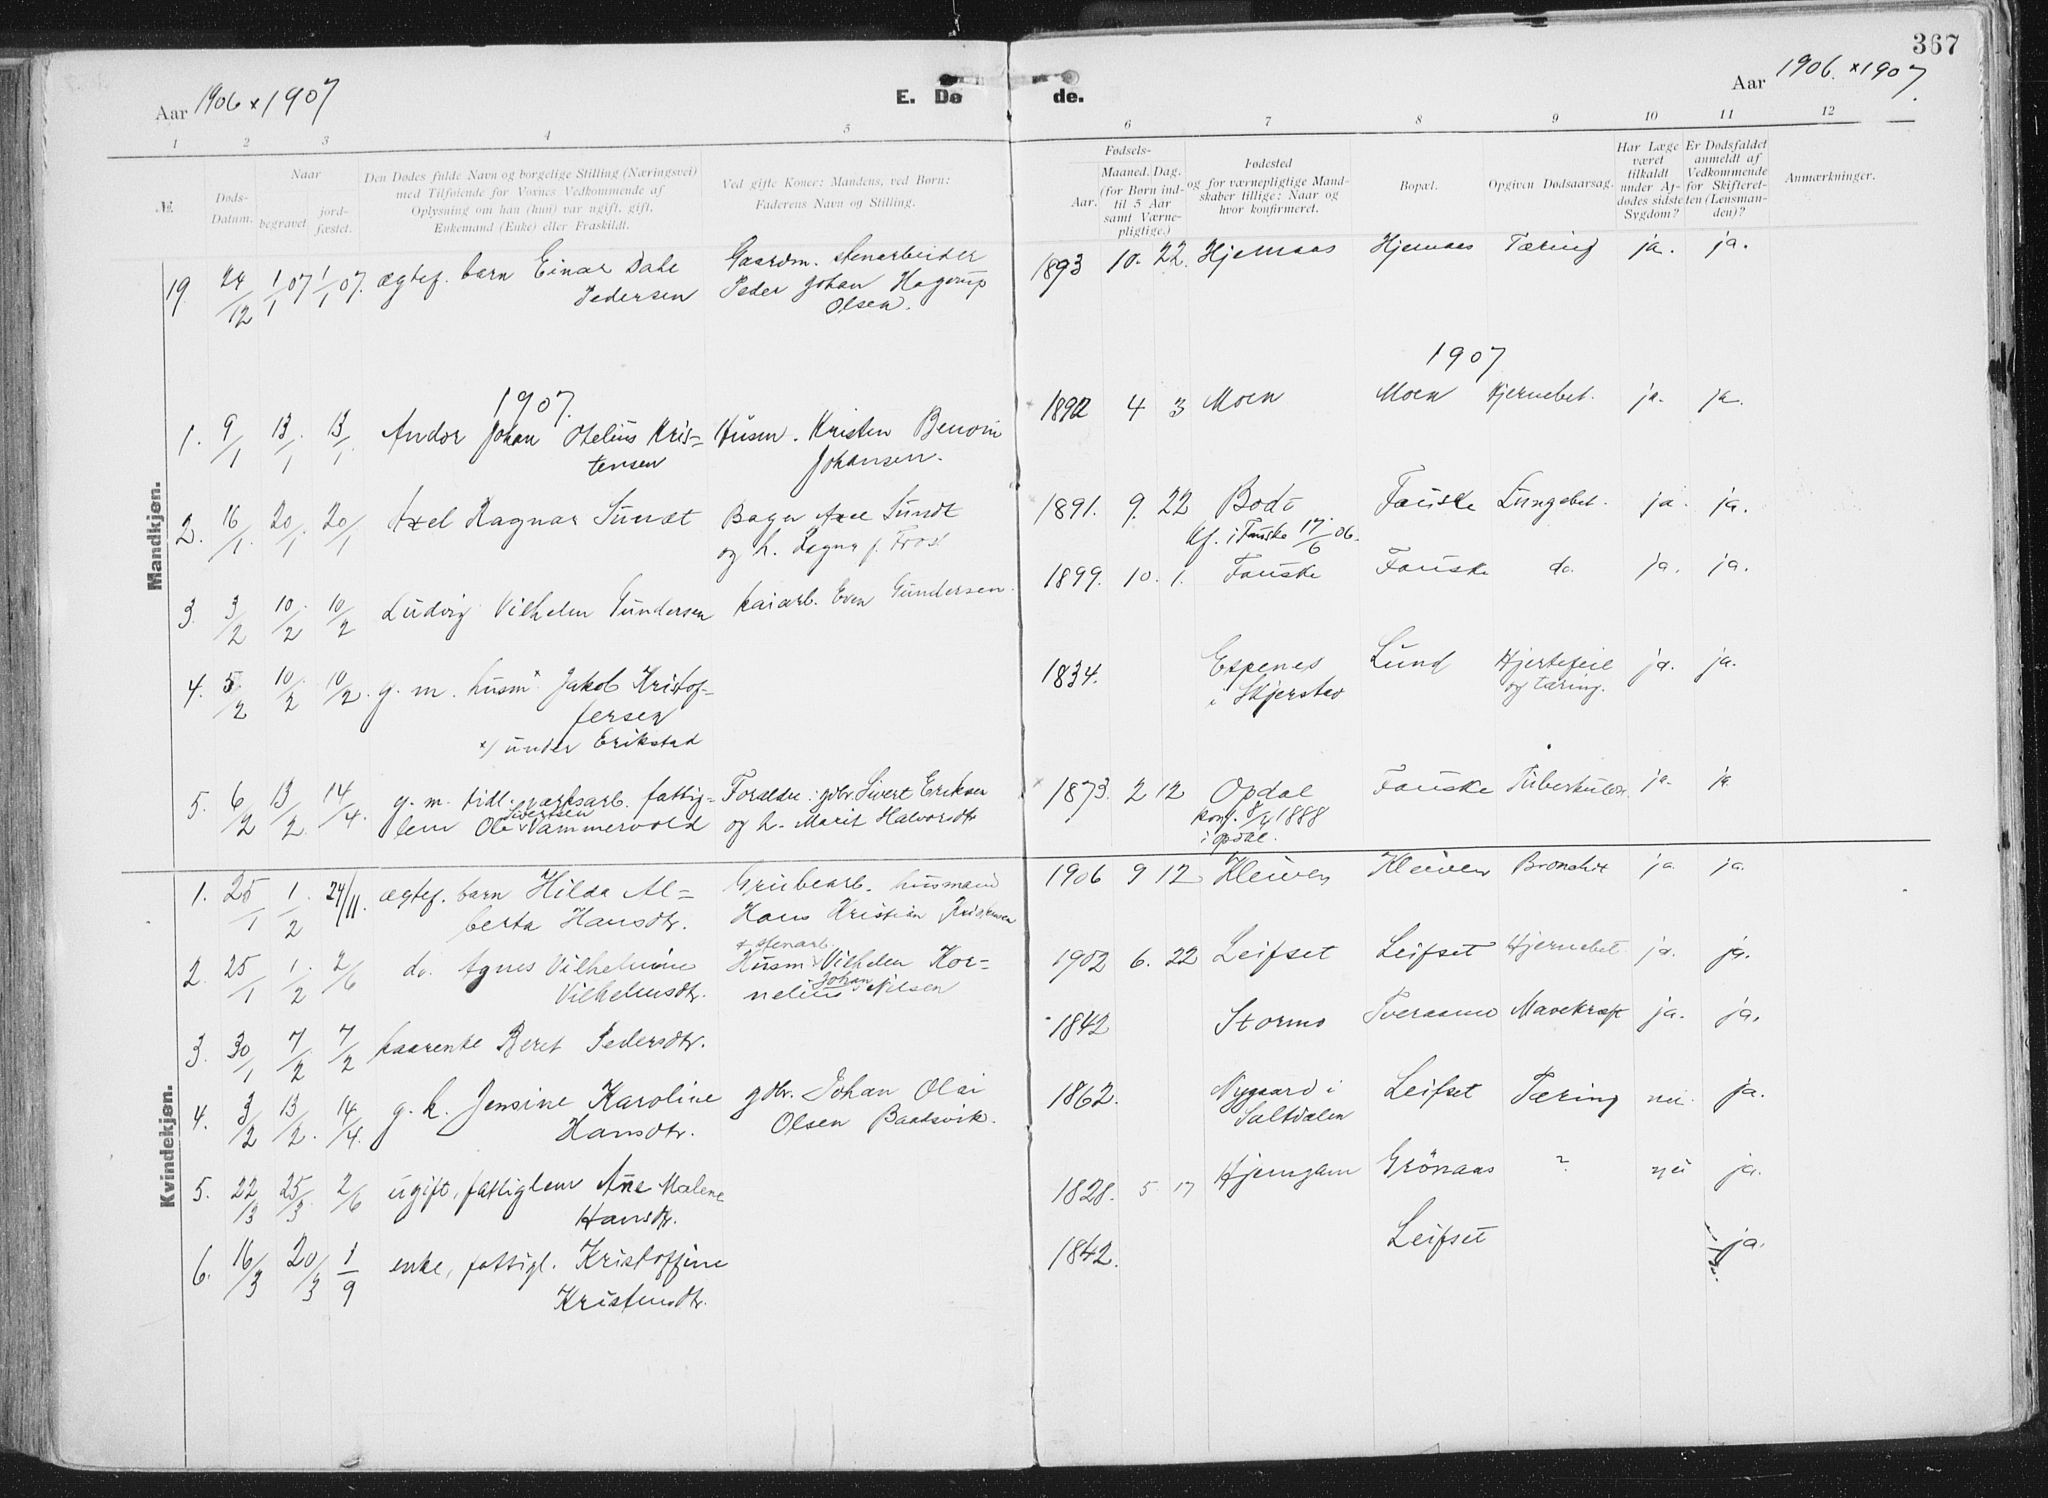 367
Aar 1906 x 1907
E. Dø de.
Aar 1906. x 1907.
1 2 3 4 5 6 7 8 9 10 11 12
№.
Døds-
Datum.
Naar
begravet
jord-
fæstet.
Den Dødes fulde Navn og borgelige Stilling (Næringsvei)
med Tilføiende for Voxnes Vedkommende af
Oplysning om han (hun) var ugift, gift,
Enkemand (Enke) eller Fraskildt.
Ved gifte Koner: Mandens, ved Børn:
Faderens Navn og Stilling.
Fødsels-
Aar.
Maaned. Dag.
(for Børn ind-
til 5 Aar
samt Værne-
pligtige.)
Fødested
og for værnepligtige Mand-
skaber tillige: Naar og
hvor konfirmeret.
Bopæl.
Opgiven Dødsaarsag.
Har Læge
været
tilkaldt
under Af-
dødes sidste
Sygdom?
Er Dødsfaldet
anmeldt af
Vedkommende
for Skifteret-
ten (Lensman-
den)?
Anmærkninger.
Mandkjøn.
19. 24/12 1/1 07 1/1 07. ægtef. barn Einar Dale Gaardm. stenarbeider 1893 10. 22. Hjemaas Hjemaas Tæring ja. ja.
Pedersen Peder Johan Hagerup
Olsen.
1907. 1907
1. 9/1 13/1 13/1 Andor Johan Otelius Kris- Husm. Kristen Benoni 1892 4 3 Moen Moen Hjernebet. ja. ja.
tensen Johansen.
2. 16/1. 20/1 20/1 Axel Ragnar Sundt Bager Axel Sundt 1891. 9. 22 Bodø Fauske Lungebet. ja. ja.
og h. Ragna f. Frost Kf. i Fauske 17/6 06.
3. 3/2 10/2 10/2 Ludvig Vilhelm Gundersen kaiarb. Even Gundersen. 1899. 10. 1. Fauske Fauske do. ja. ja.
4. 5/2 10/2 10/2. g. m. husm x Jakob Kristof- 1834. Espenes Lund Hjertefeil ja. ja.
fersen i Skjerstad og tæring.
x/ under Erikstad
5. 6/2 13/2. 14/4. g. m. tidl. værksarb. fattig- Forældre: gbr. Sivert Eriksen 1873. 2 12 Opdal Fauske Tuberkulos. ja. ja
Sivertsen
lem Ole Vammervold og h. Marit Halvorsdtr konf. 8/4 1888
i Opdal.
Kvindekjøn.
1. 25/1 1/2 24/11. ægtef. barn Hilda Al- Grubearb. husmand 1906 9 12 Kleiven Kleiven Bronchit ja ja.
berta Hansdtr. Hans Kristian Kristensen
+ stenarb.
2. 25/1 1/2 2/6 do. Agnes Vilhelmine Husm. Vilhelm Kor- 1902 6. 22 Leifset Leifset Hjernebet. ja. ja.
Vilhelmsdtr. nelius Johan Nilsen
3. 30/1 7/2 7/2 kaarenke Beret Pedersdtr. 1842 Stormo Tveraamo Mavekræft ja. ja.
4. 3/2 13/2. 14/4. g. k. Jensine Karoline gbr. Johan Olai 1862. Nygaard i Leifset Tæring nei ja.
Hansdtr. Olsen Baadsvik. Saltdalen
5. 22/3 25/3. 2/6 ugift, fattiglem Ane Malene 1828. 5. 17 Hjemgam Grönaas ? nei ja.
Hansdtr.
6. 16/3 20/3 1/9 enke, fattigl. Kristoffine 1842. Leifset ja.
Kristensdtr.